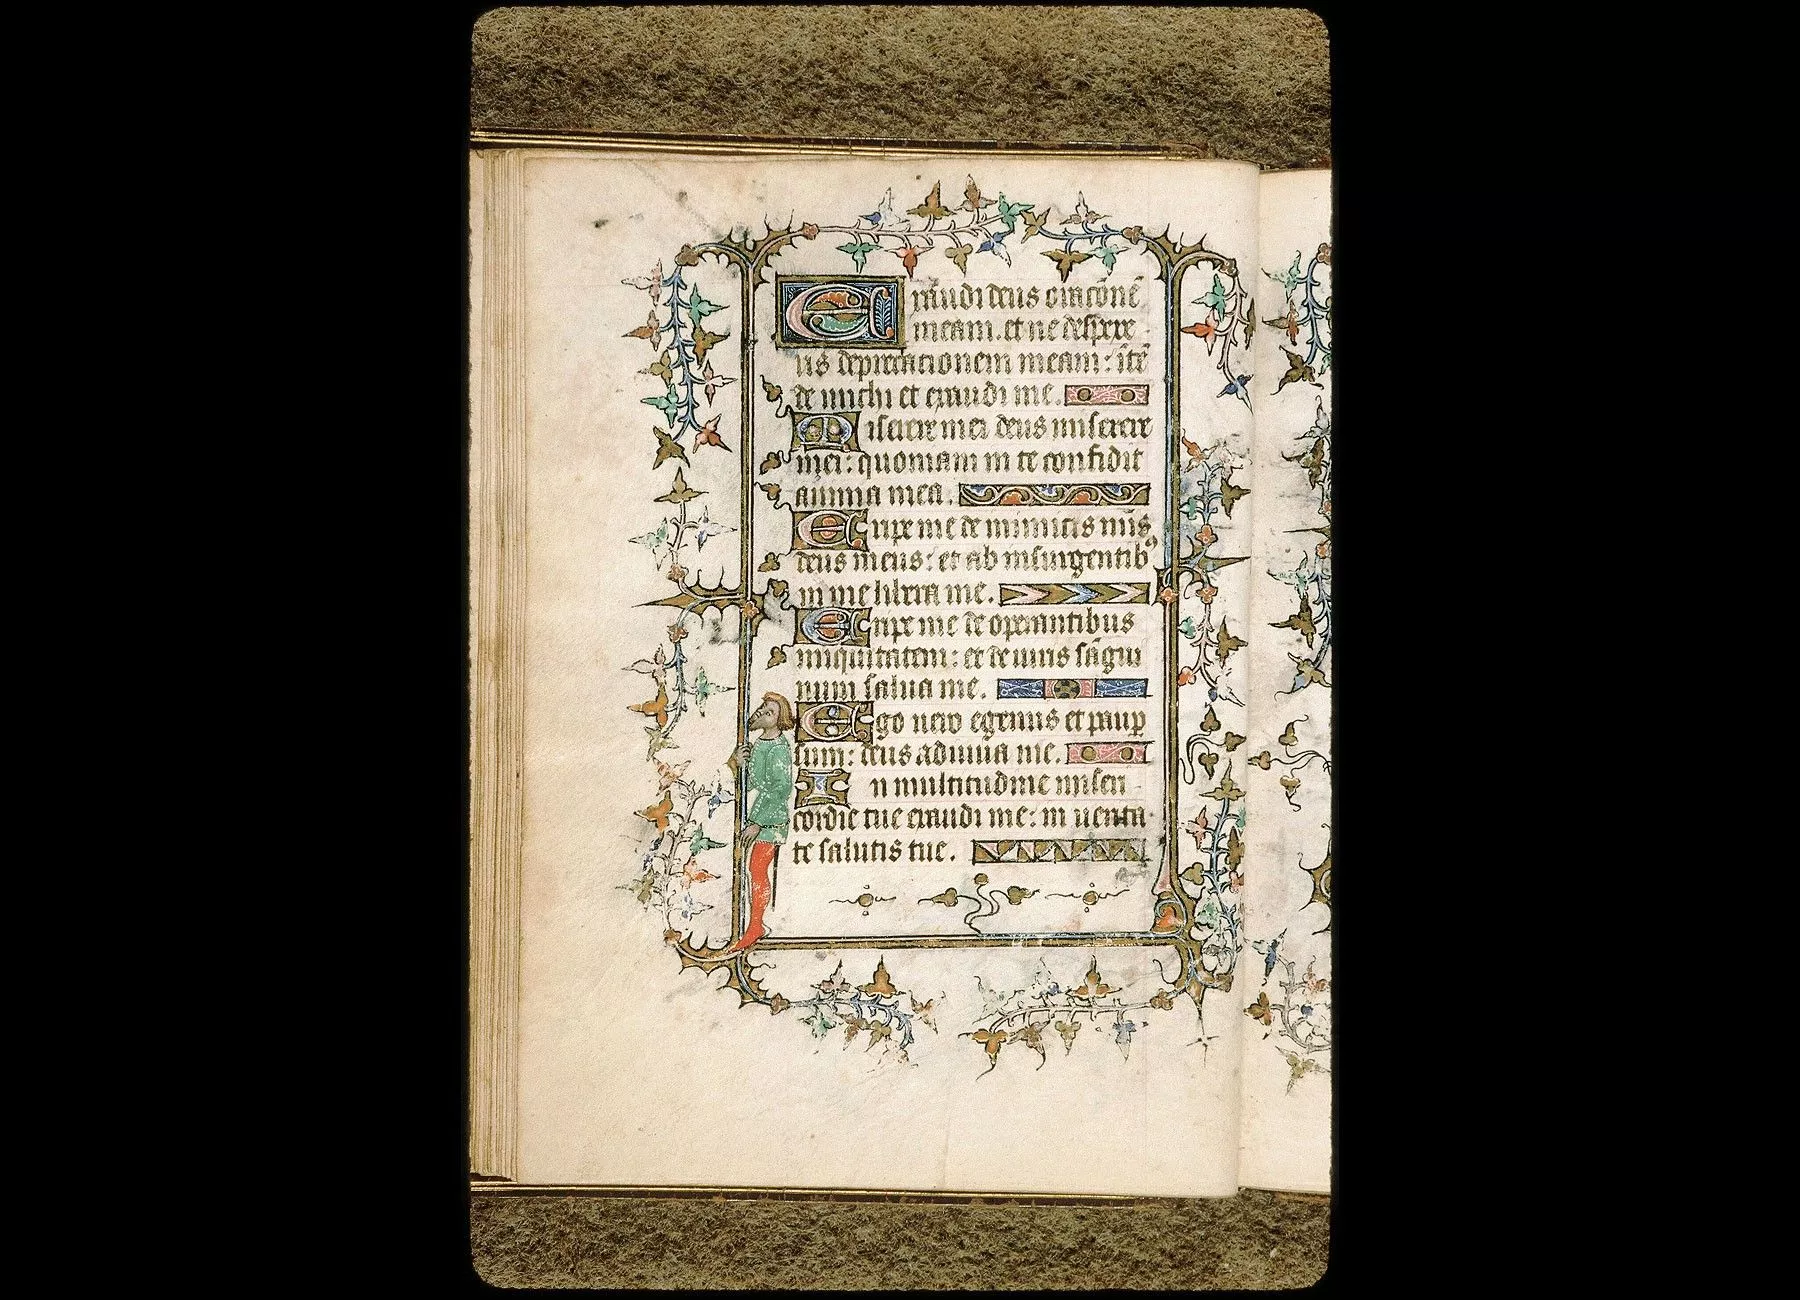 Exaudi deus oracōnē
meam. et ne despexe
ris deprecationem meam: ītē
de michi et exaudi me.
Miserere mei deus miserere
mei: quoniam in te confidit
anima mea.
Eripe me de inimicis mīs
deus meus: et ab insurgentibꝰ
in me libera me.
Eripe me de operantibus
iniquitatem: et de uiris sāgui
num salua me.
Ego uero egenus et paup̱
sum: deus adiuua me.
In multitudine miseri
cordie tue exaudi me: in uerita
te salutis tue.